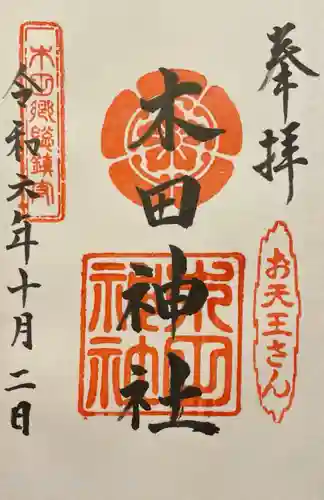 奉拝
お天王さん
木田神社
木田神社
木田郷総鎮守
令和元年十月二日